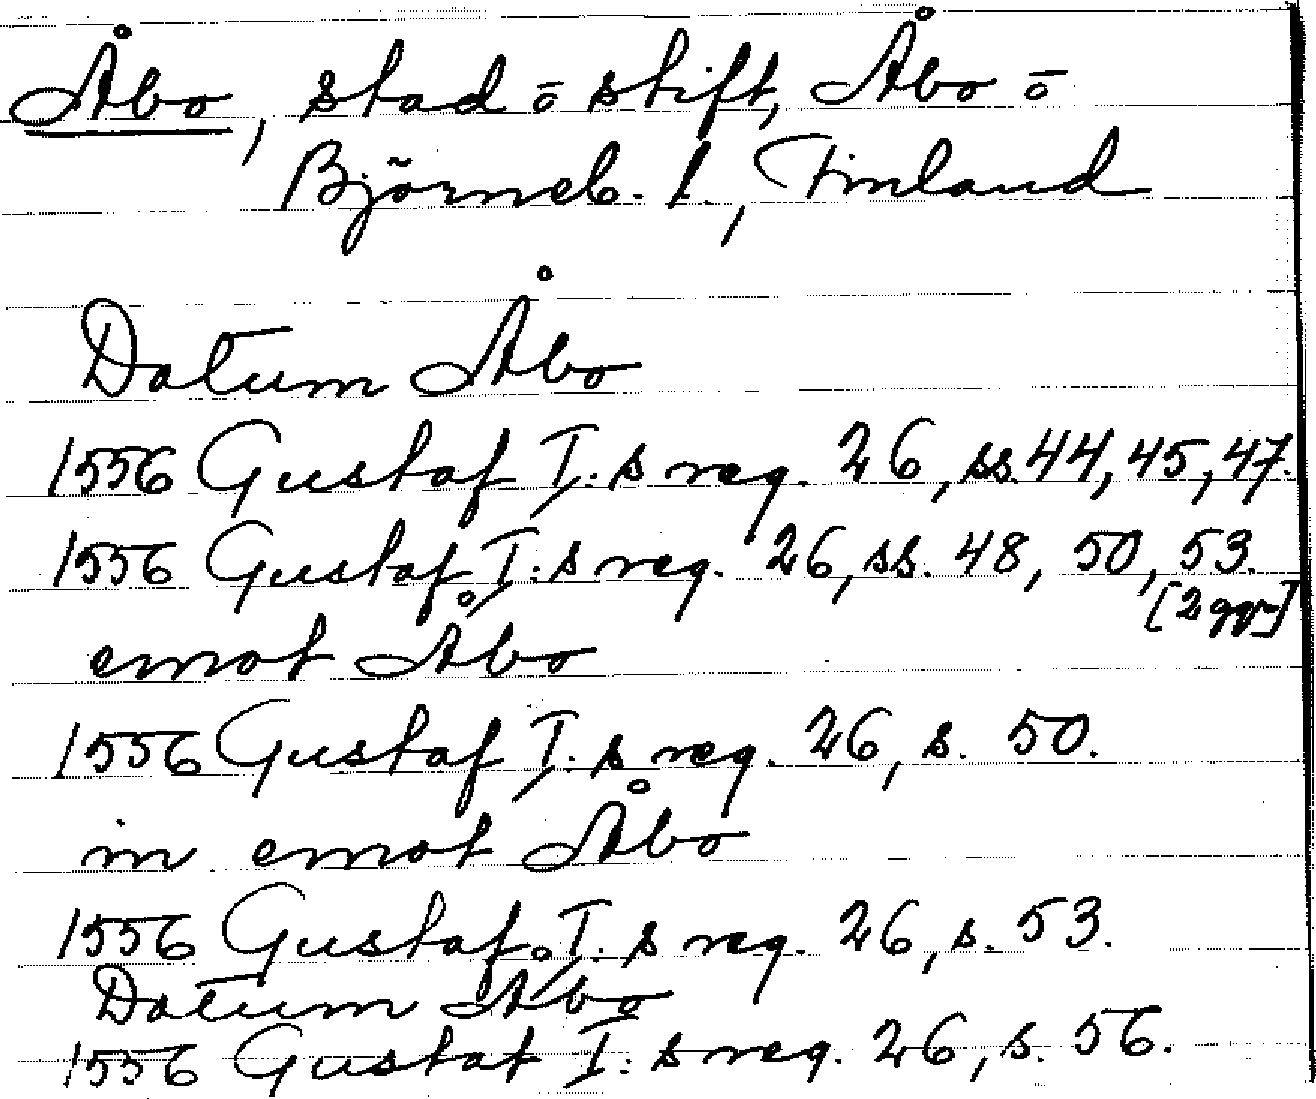 Åbo, stad o stift, Åbo o
Björneb. l., Finland
Datum Åbo
1556 Gustaf I:s reg. 26, ss. 44, 45, 47.
1556 Gustaf I:s reg. 26, ss. 48, 50, 53.
[2 ggr]
emot Åbo
1556 Gustaf I:s reg. 26, s. 50.
in emot Åbo
1556 Gustaf I:s reg. 26, s. 53.
Datum Åbo
1556 Gustaf I:s reg. 26, s. 56.